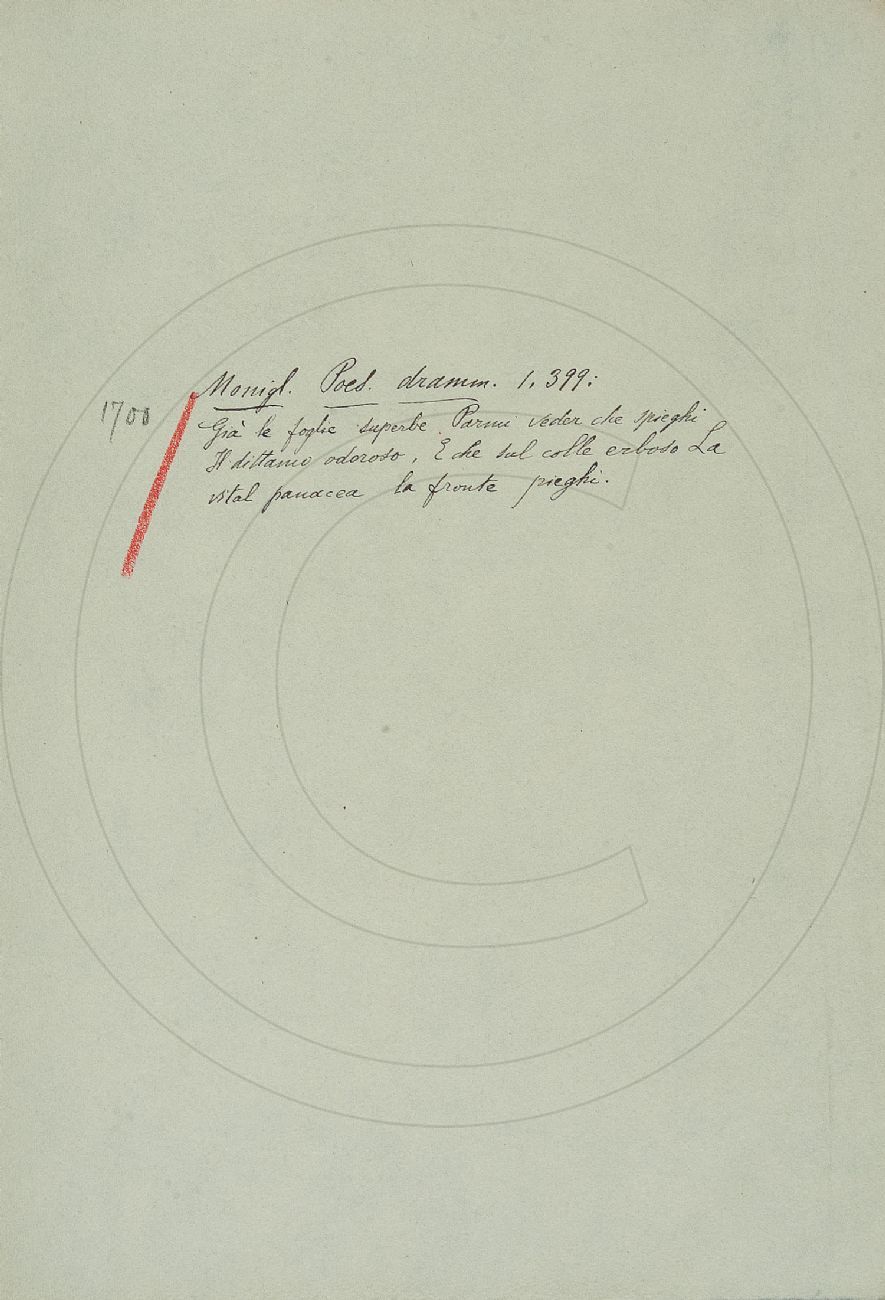 Monigl. Poes. dramm. 1. 399:
1700
Già le foglie superbe Parmi veder che spieghi
Il dittamo odoroso, E che sul colle erboso La
vital panacea la fronte pieghi.